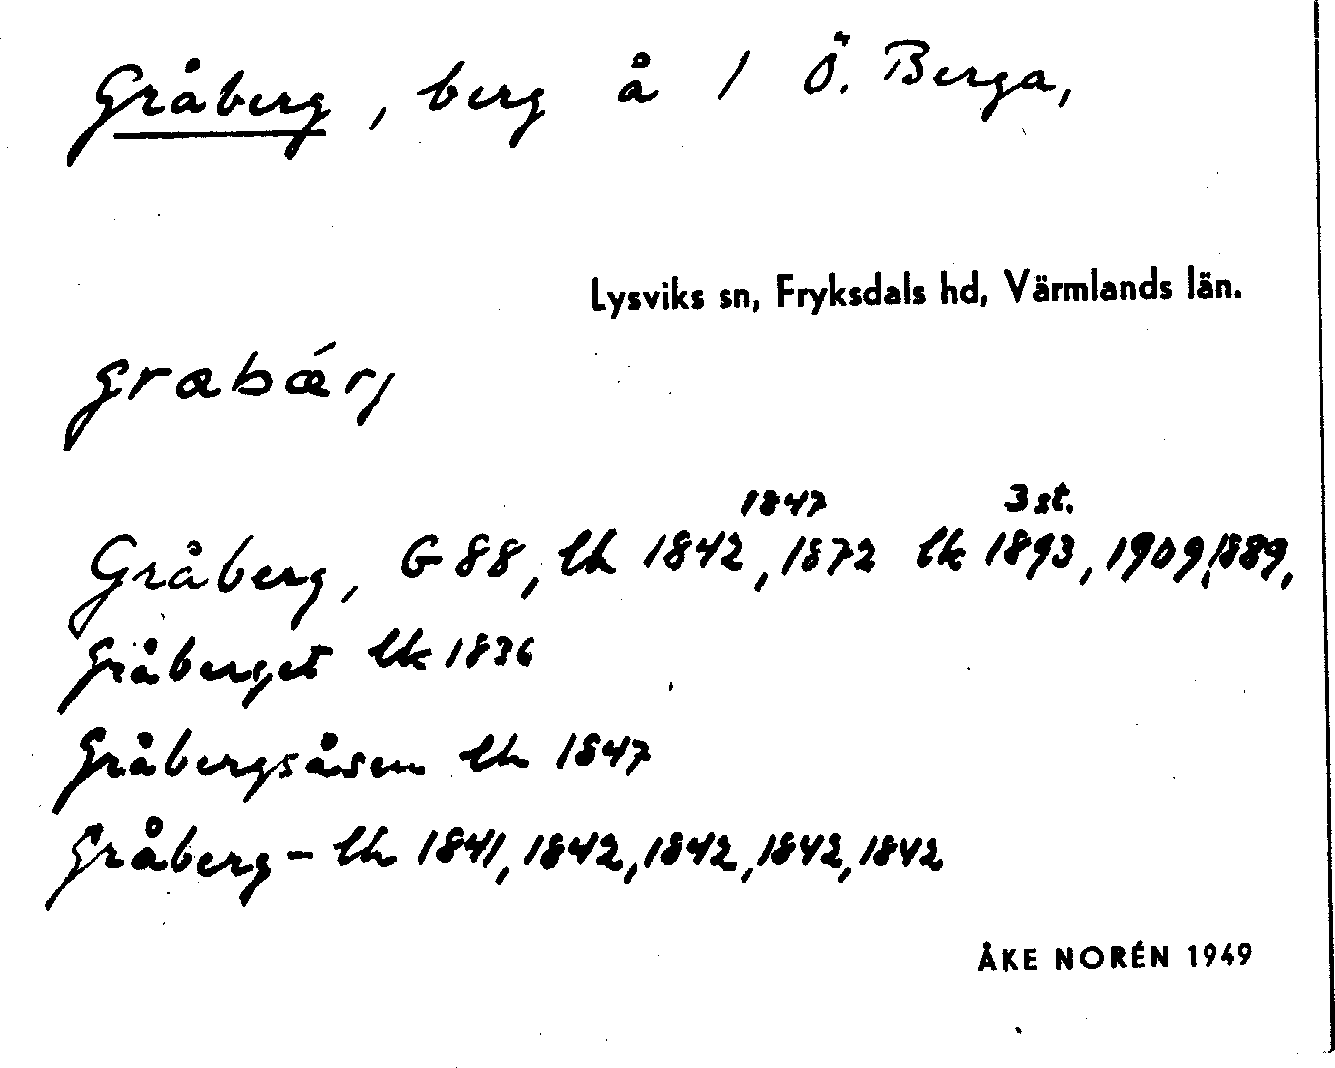 Gråberg, berg å 1 Ö. Berga,
Lysviks sn, Fryksdals hd, Värmlands län.
grabǽrj
1847 3 st.
Gråberg, G 88, lk 1842, 1872 lk 1893, 1909, 1889,
Gråberget lk 1836
Gråbergsåsen lk 1847
Gråberg - lk 1841, 1842, 1842, 1842, 1842
ÅKE NORÉN 1949